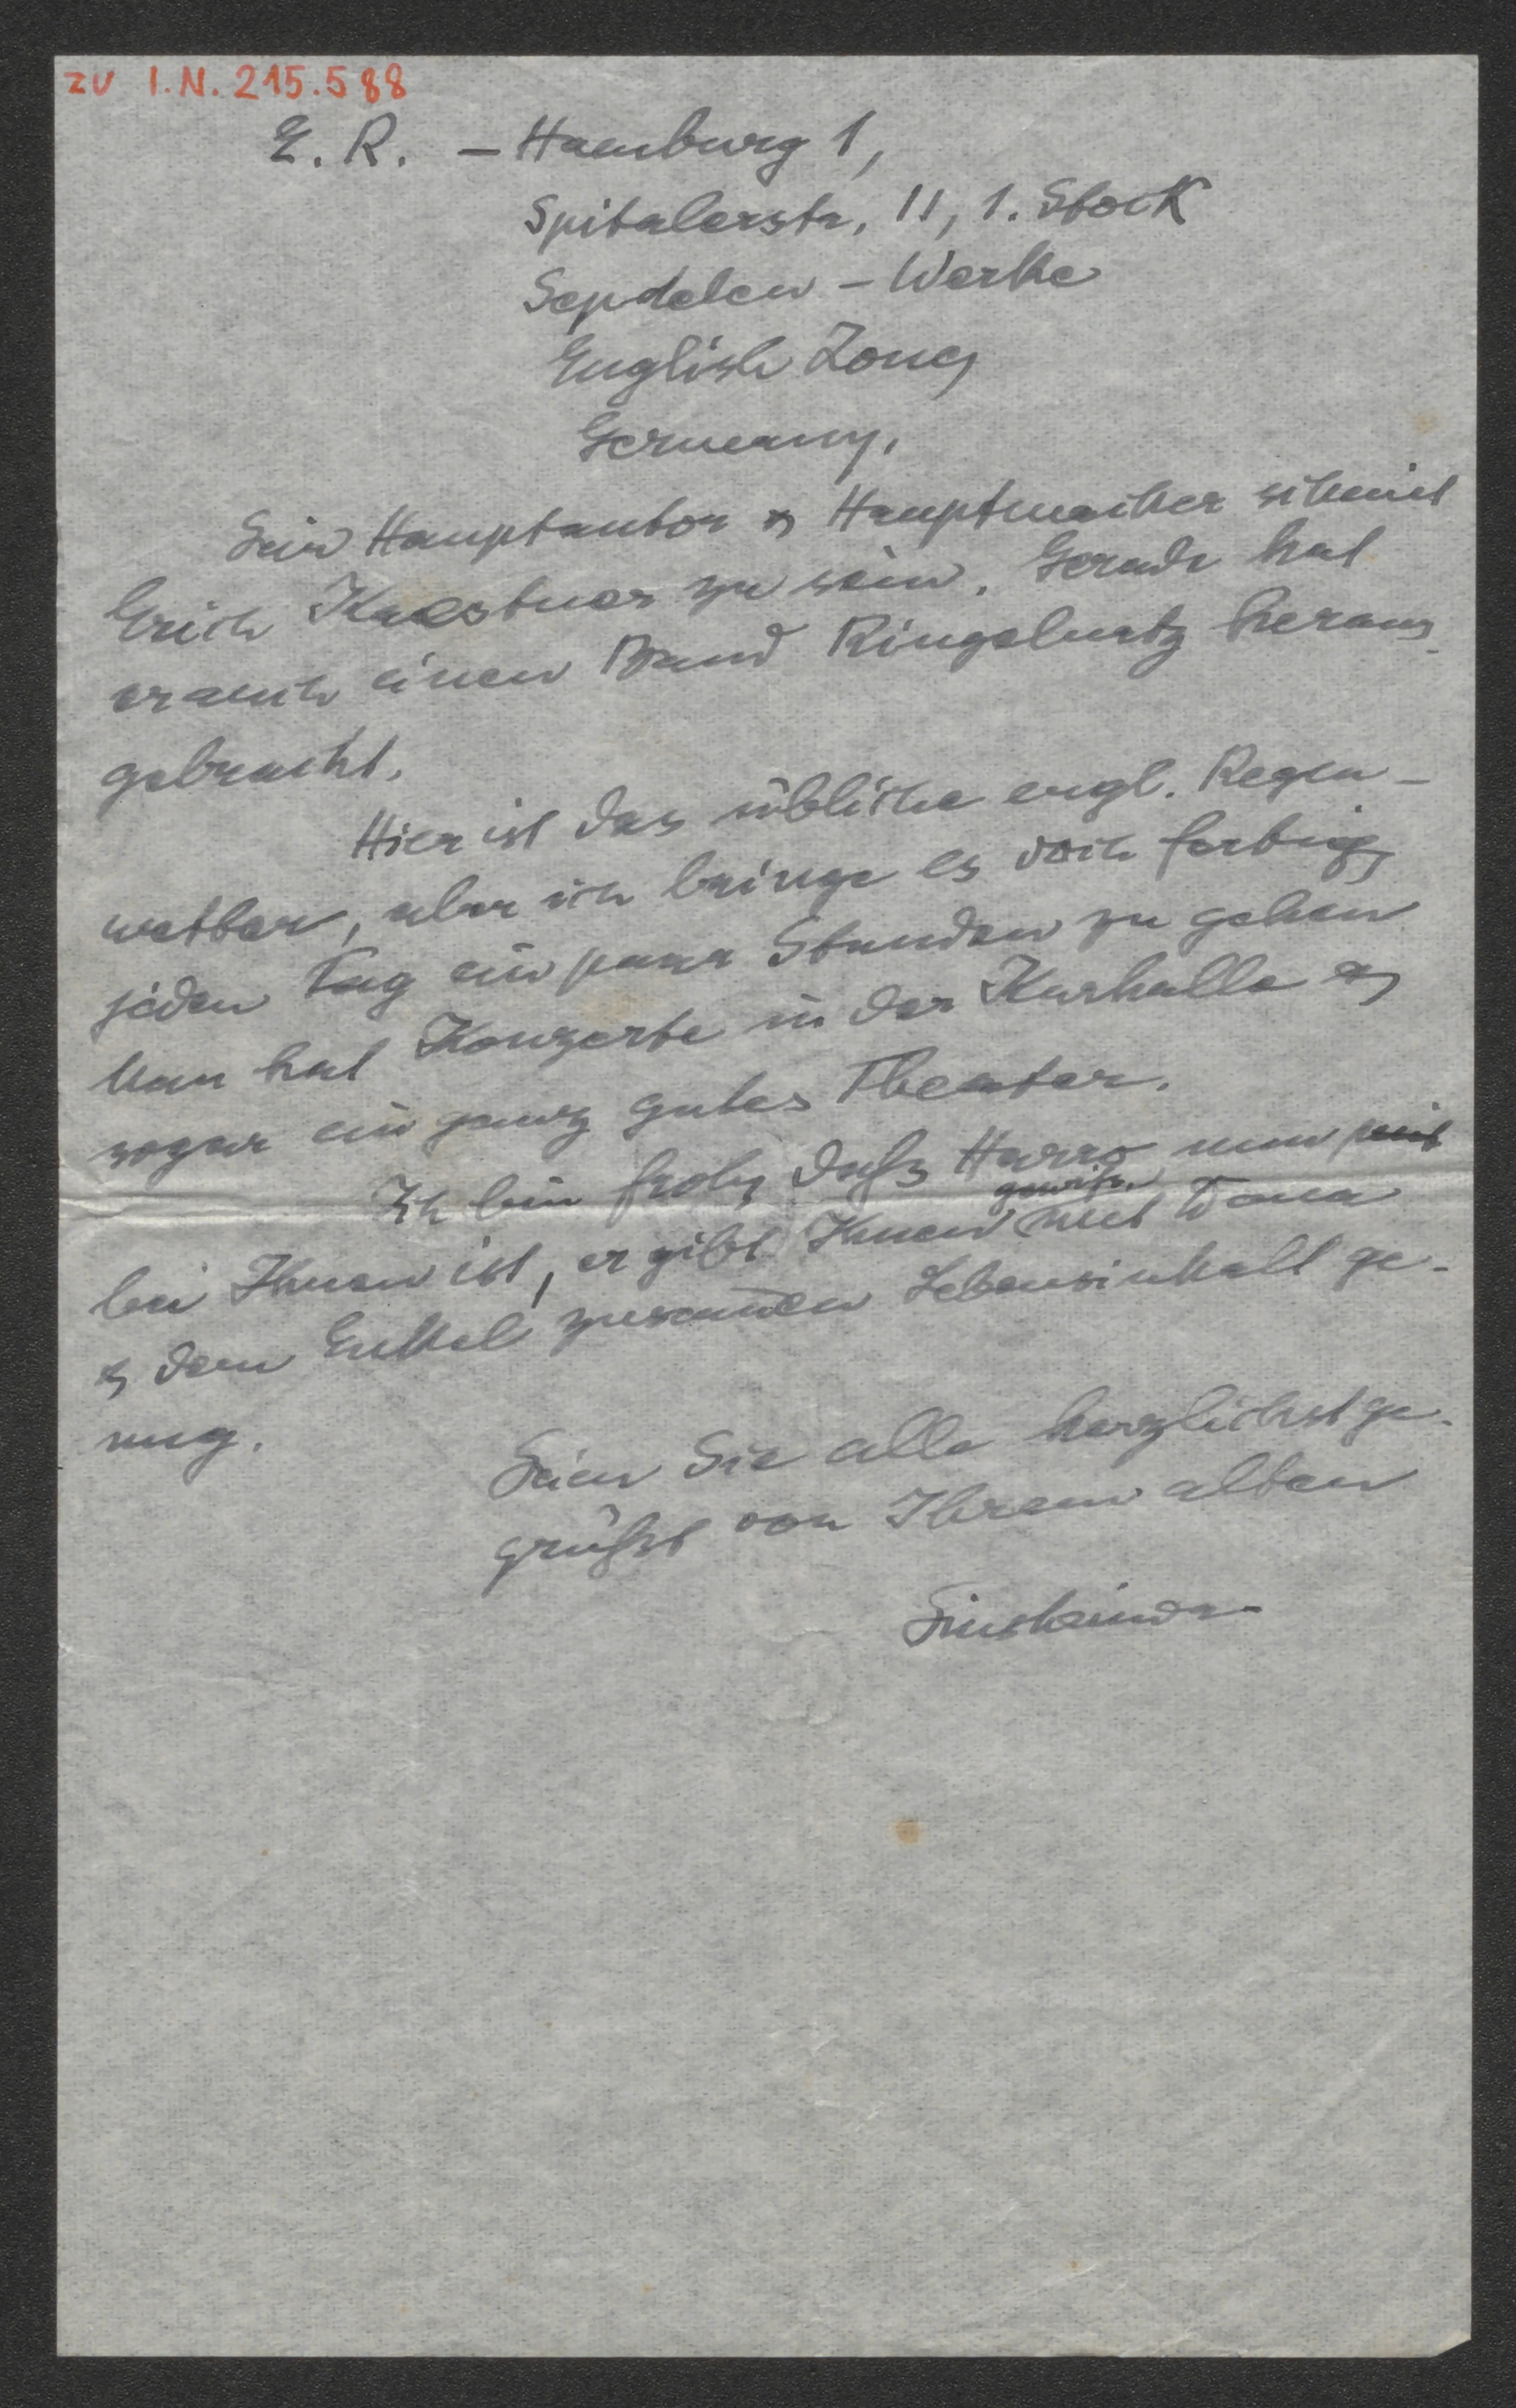 zu I.N. 215.588
E. R. – Hamburg 1,
Spitalerstr. 11, 1. Stock
Sepdelen – Werke
English Zone,
Germany.
Sein Hauptautor & Hauptmacher scheint
Erich Kaestner zu sein. Gerade hat
er auch einen Band Ringelnatz heraus-
gebracht.
Hier ist das übliche engl. Regen-
wetter, aber ich bringe es doch fertig,
jeden Tag ein paar Stunden zu gehen
Man hat Konzerte in der Kurhalle &
sogar ein ganz gutes Theater.
Ich bin froh, dass Harro nun
bei Ihnen ist, er gibt Ihnen gewiss mit
& dem Enkel zusammen Lebensinhalt ge-
nug.
Seien Sie alle herzlichst ge-
grüßt von Ihrem alten
Sinsheimer